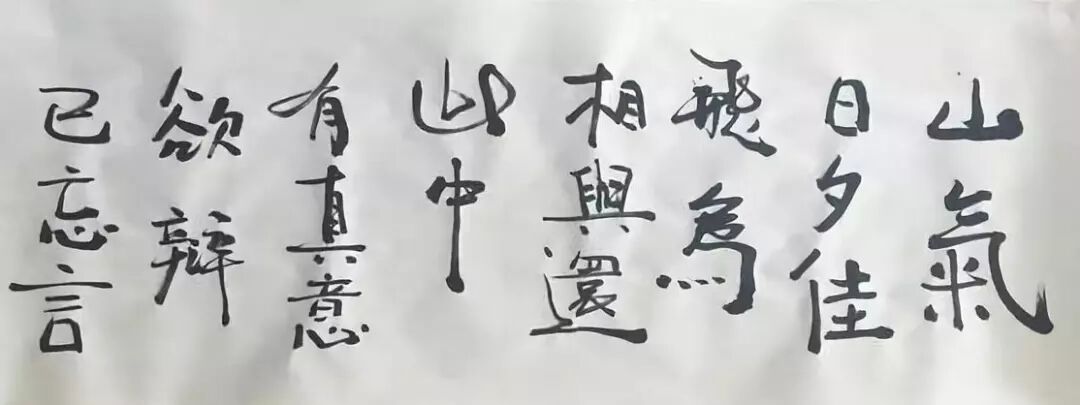 山氣
日夕佳
飛鳥
相與還
此中
有真意
欲辯
已忘言